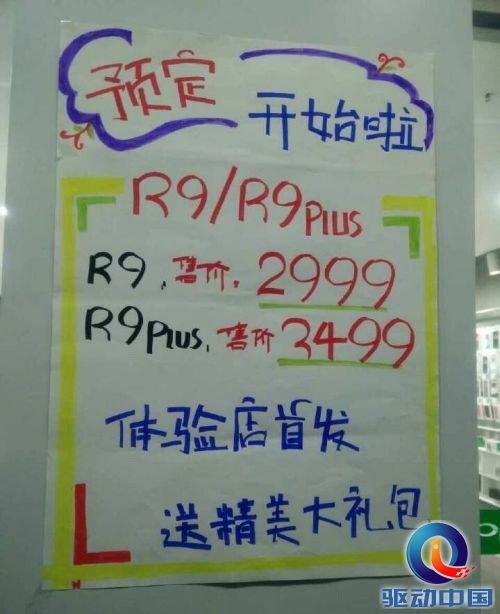 预定
开始啦
R9/R9Plus
R9, 售价, 2999
R9Plus, 售价 3499
体验店首发
送精美大礼包
驱动中国